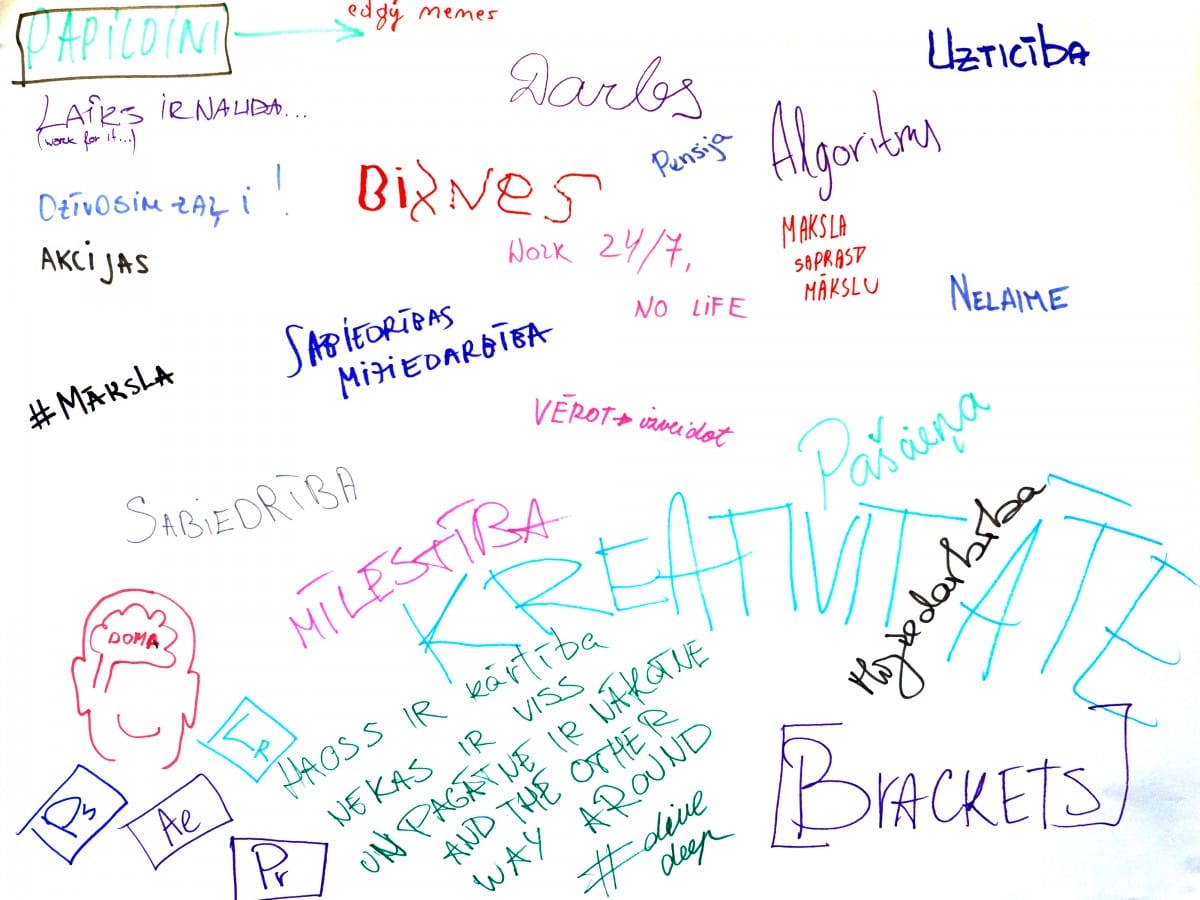 PAPILDINI
edgy memes
LAIKS IR NAUDA...
(work for it...)
DZĪVOSIM ZAĻI!
AKCIJAS
Darbs
UZTICĪBA
Pensija
Algoritms
BIZNES
WORK 24/7,
NO LIFE
MAKSLA
SAPRAST
MĀKSLU
NELAIME
SABIEDRĪBAS
MIJIEDARBĪBA
#MĀKSLA
VĒROT → izveidot
Pašcieņa
SABIEDRĪBA
MĪLESTĪBA
KREATIVITĀTE
Mijiedarbība
DOMA
LR
Ps
Ae
Pr
HAOSS IR kārtība
NEKAS IR VISS
UN PAGĀTNE IR NĀKOTNE
AND THE OTHER
WAY AROUND
#dive
deep
BRACKETS